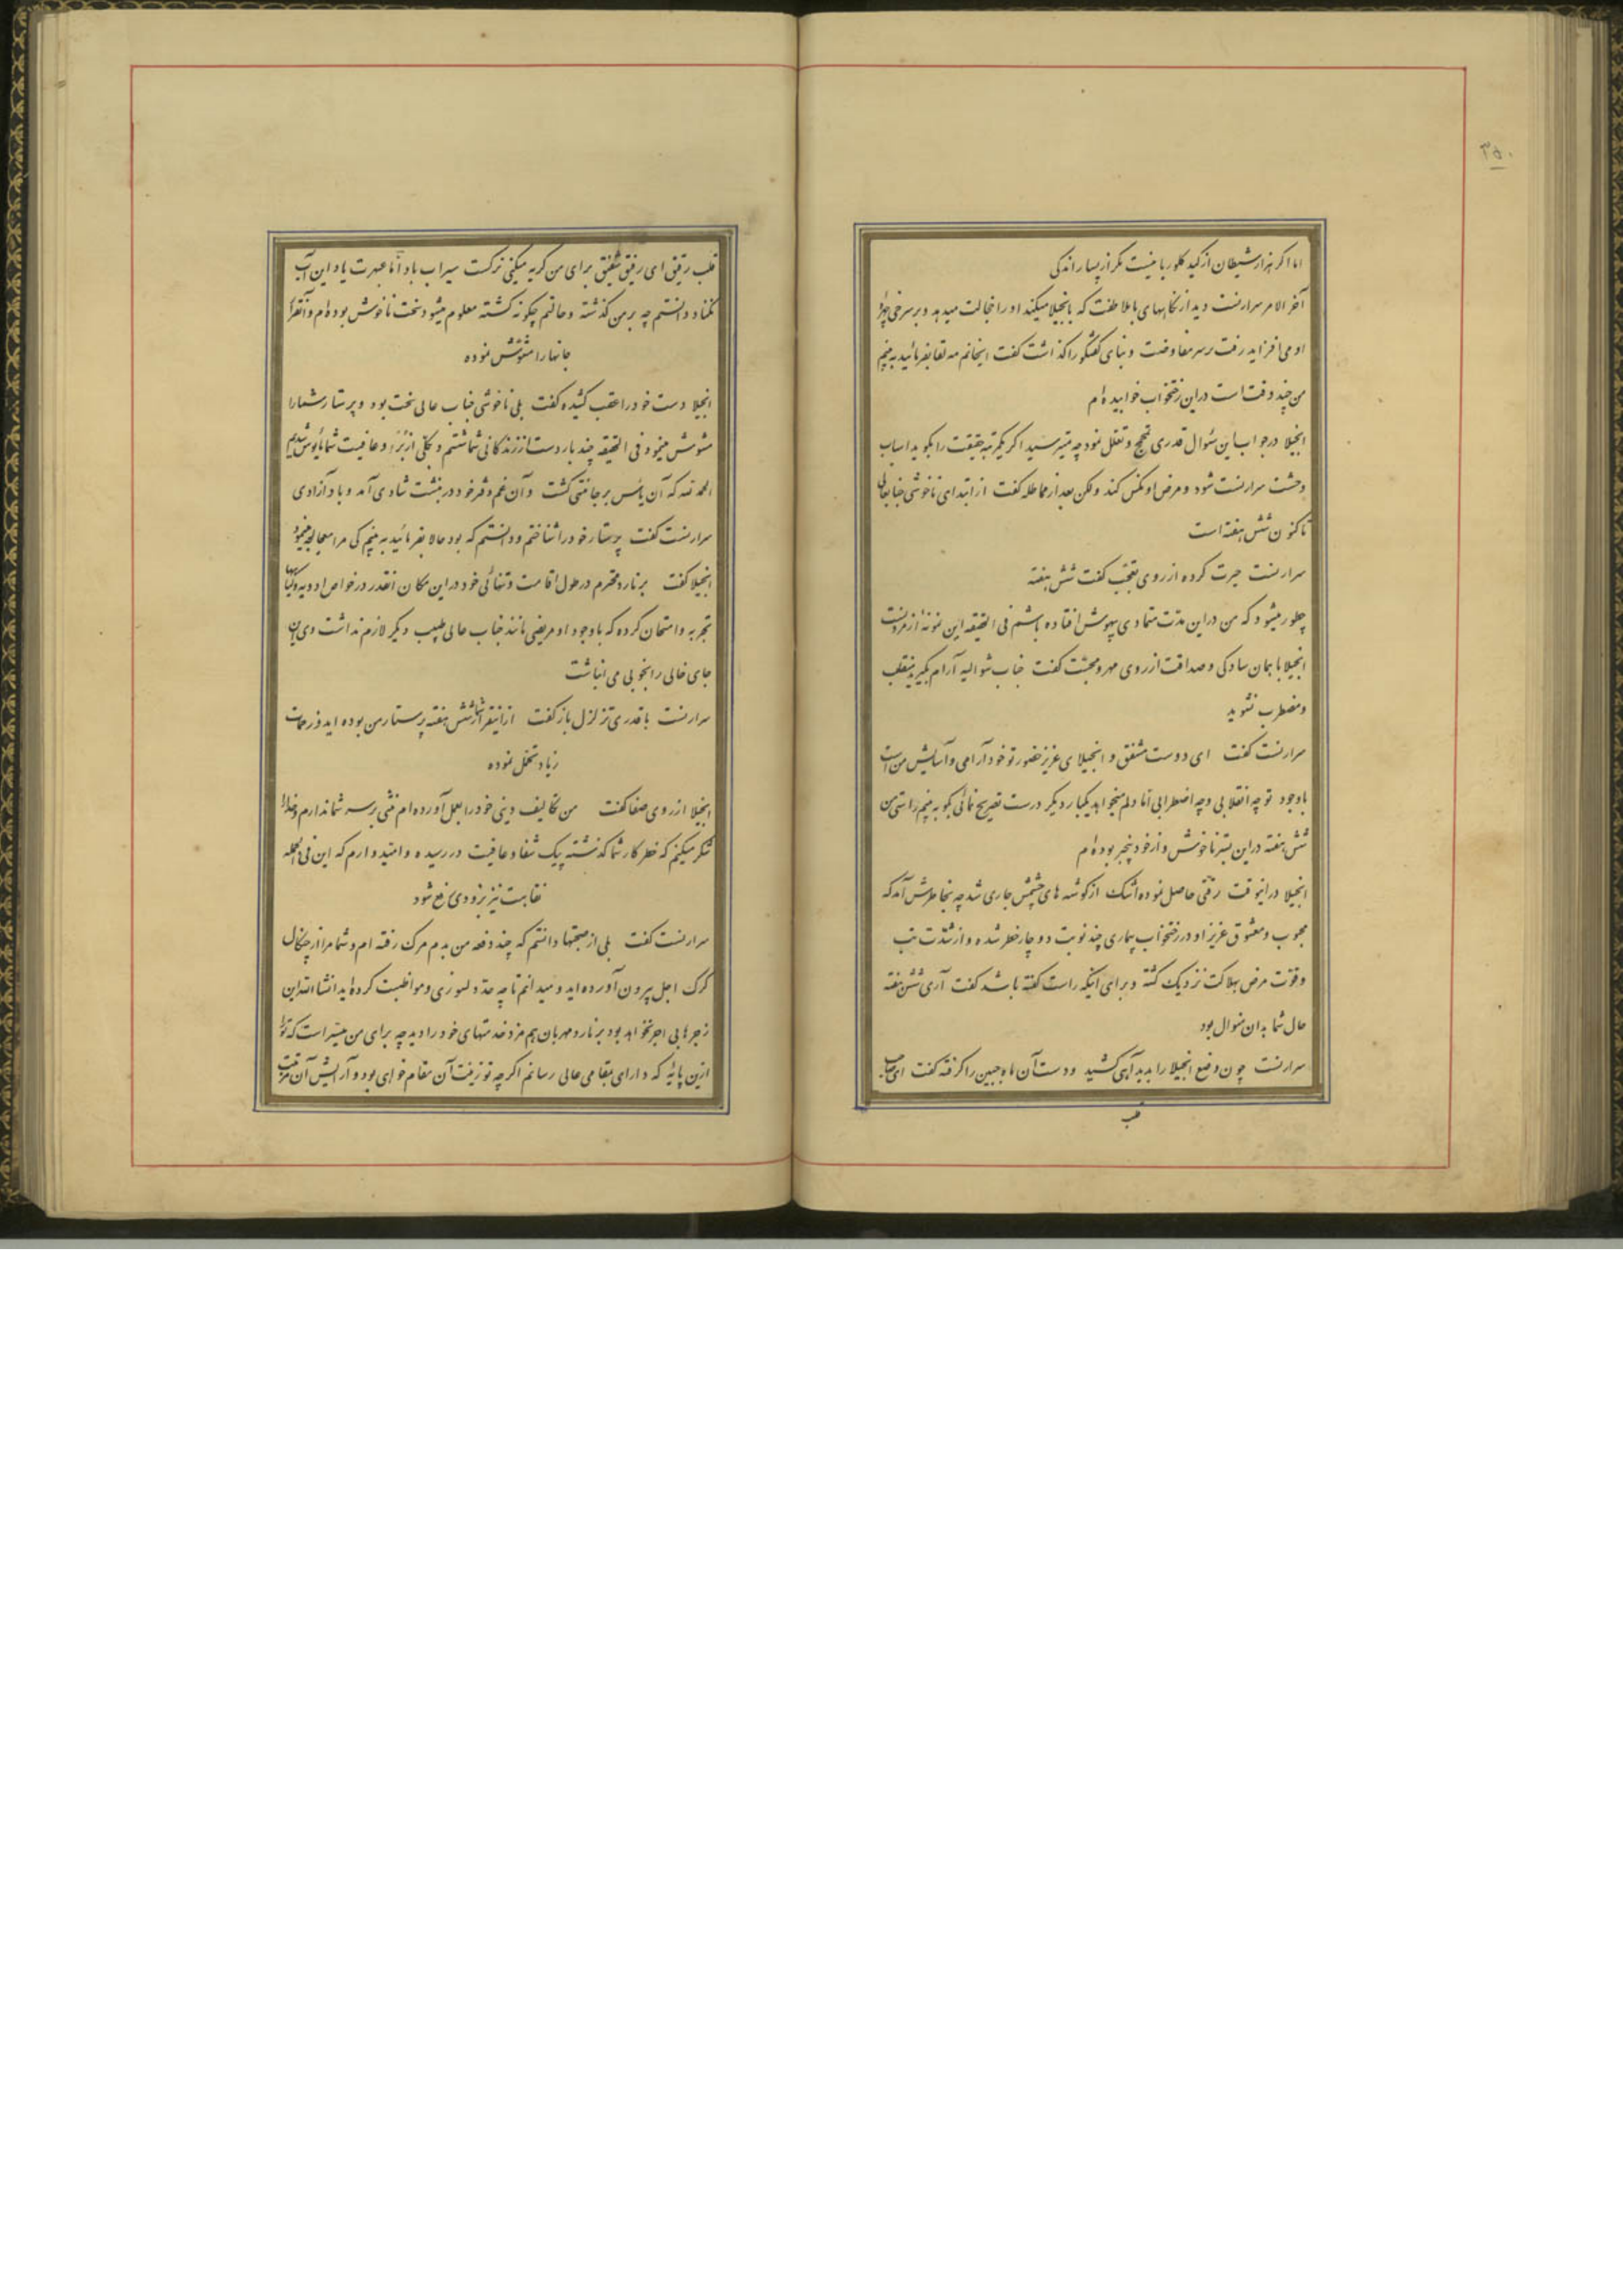 ۳۵۰
اما اگر هزار شیطان از کید کلورپا نیست مگر از بسیار اندکی
آخر الامر سرارنست دید از نگاههای با ملاطفت که بانجیلا میکند او را خجالت میدهد و بر سرخی چهره
او می افزاید رفت بر سر مفاوضت و بنای گفتگو را گذاشت گفت اینخانم مه لقا بفرمائید به بینم
من چند وقت است در این رختخواب خوابیده ام
انجیلا در جواب این سئوال قدری تمجمج و تعلل نمود چه میترسید اگر یکمرتبه حقیقت را بگوید اسباب
وحشت سرارنست شود و مرض او نکس کند ولکن بعد از مماطله گفت از ابتدای ناخوشی جنابعالی
تاکنون شش هفته است
سرارنست حیرت کرده از روی تعجب گفت شش هفته
چطور میشود که من در این مدت متمادی بیهوش افتاده باشم فی الحقیقه این نمونه از مردنست
انجیلا با همان سادگی و صداقت از روی مهر و محبت گفت جناب شوالیه آرام بگیرید منقلب
و مضطرب نشوید
سرارنست گفت ای دوست مشفق و انجیلای عزیز حضور تو خود آرامی و آسایش من است
باوجود تو چه انقلابی و چه اضطرابی اما دلم میخواهد یکبار دیگر درست تصریح نمائی بگو به بینم راستی من
شش هفته در این بستر ناخوش و از خود بیخبر بوده ام
انجیلا در اینوقت رقتی حاصل نموده اشک از گوشه های چشمش جاری شد چه بخاطرش آمد که
محبوب و معشوق عزیز او در رختخواب بیماری چند نوبت دوچار خطر شده و از شدت تب
و قوت مرض بهلاکت نزدیک گشته و برای اینکه راست گفته باشد گفت آری شش هفته
حال شما بدان منوال بود
سرارنست چون وضع انجیلا را بدید آهی کشید و دست آن ماه جبین را گرفته گفت ای صاحب
قلب
قلب رقیق ای رفیق شفیق برای من گریه میکنی نرگست سیراب باد اما عبهرت یاد این آب
نکناد دانستم چه بر من گذشته و حالتم چگونه گشته معلوم میشود سخت ناخوش بوده ام و آنقرار
جانها را مشوش نموده
انجیلا دست خود را عقب کشیده گفت بلی ناخوشی جناب عالی سخت بود و پرستار شما را
مشوش مینمود فی الحقیقه چند بار دست از زندگانی شما شستم و بکلی از برء و عافیت شما مأیوس شدیم
الحمد لله که آن یأس بر جا نمی گشت و آن غم و قرخود در بنشت شادی آمد و باد آزادی
سرارنست گفت پرستار خود را شناختم و دانستم که بود حالا بفرمائید به بینم کی مرا معالجه مینمود
انجیلا گفت برنارد محترم در طول اقامت و تنهائی خود در این مکان انقدر در خواص ادویه و گیاهها
تجربه و امتحان کرده که باوجود او مریضی مانند جناب عالی طبیب دیگر لازم نداشت وی آن
جای خالی را بخوبی می انباشت
سرارنست با قدری تزلزل باز گفت از اینقرار شما شش هفته پرستار من بوده اید و زحمات
زیاد تحمل نموده
انجیلا از روی صفا گفت من تکالیف دینی خود را بعمل آورده ام منتی بر سر شما ندارم و خدا را
شکر میکنم که خطر کار شما گذشته پیک شفا و عافیت در رسیده و امیدوارم که این فی الجمله
نقاهت نیز بزودی رفع شود
سرارنست گفت بلی از صحبتها دانستم که چند دفعه من بدم مرگ رفته ام و شما مرا از چنگال
گرگ اجل بیرون آورده اید و میدانم تا چه حد دلسوزی و مواظبت کرده اید انشاءالله این
زجرها بی اجر نخواهد بود برنارد مهربان هم مزد خدمتهای خود را دید چه برای من میسر است که تو را
ازین پایه که دارای بمقامی عالی رسانم اگر چه تو زینت آن مقام خواهی بود و آرایش آن مرتبت